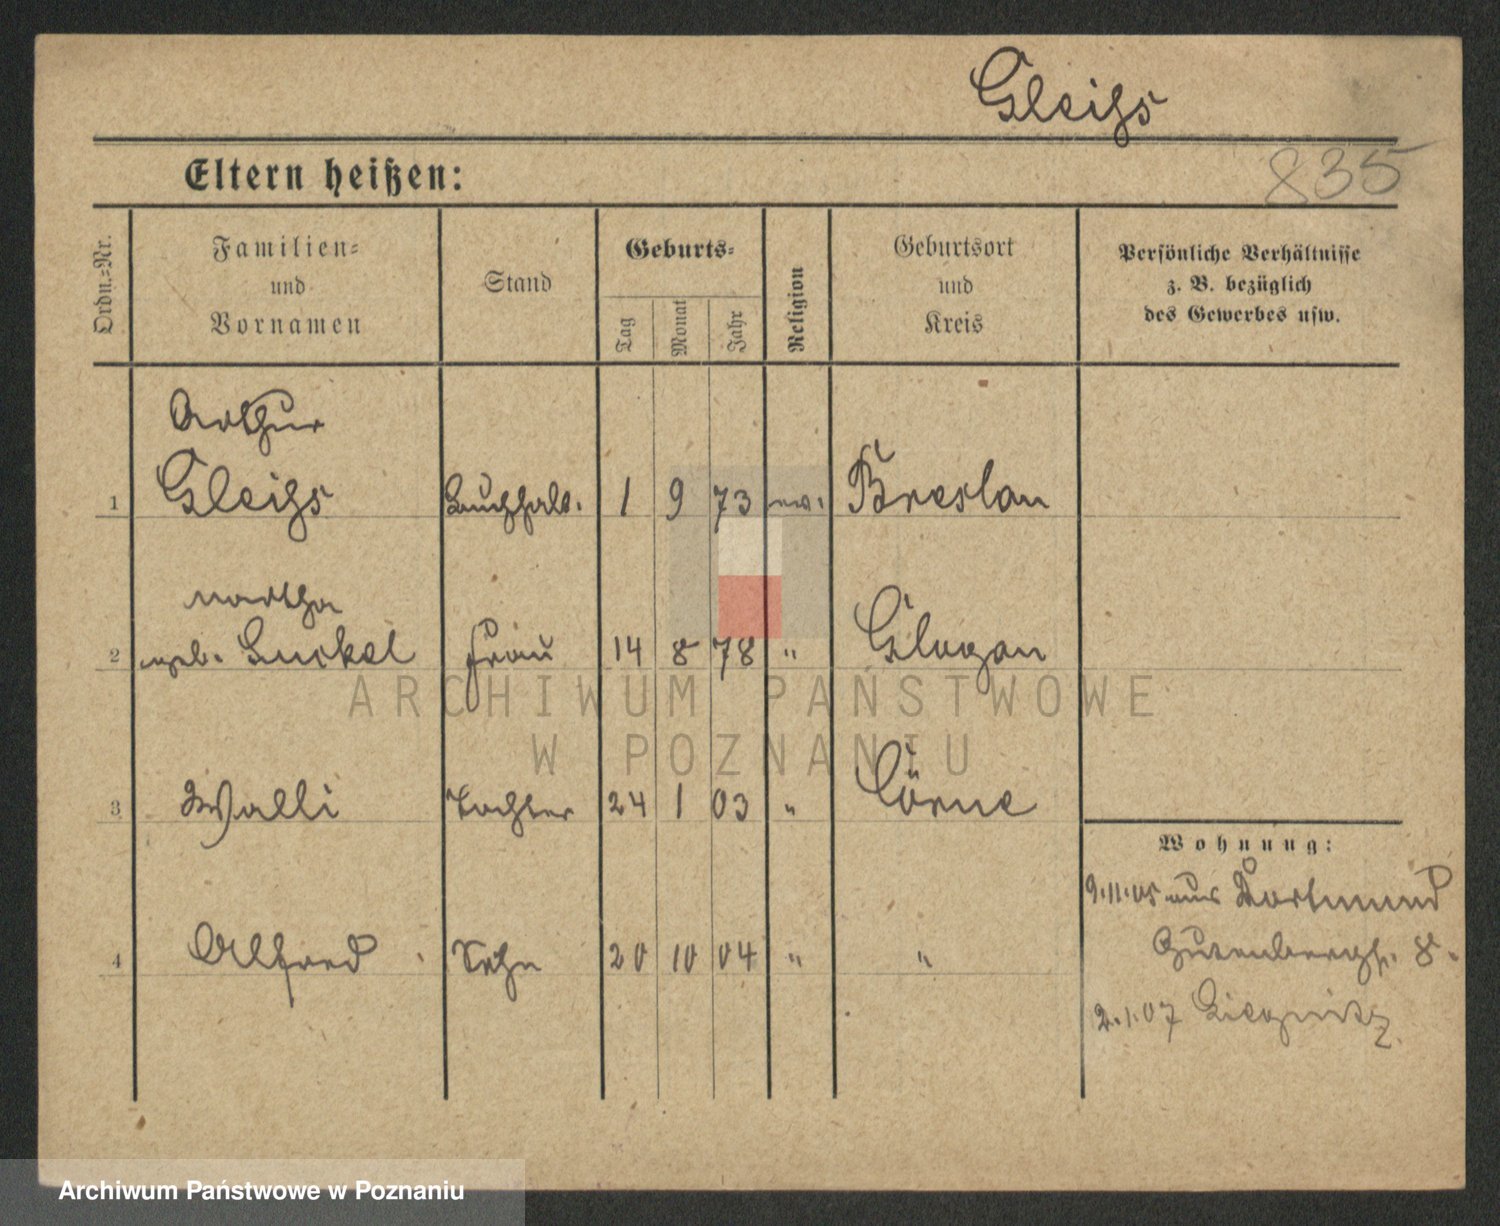 Gleihs
835
Eltern heißen:
Ordn.=Nr.
Familien=
und
Vornamen
Stand
Geburts=
Tag
Monat
Jahr
Religion
Geburtsort
und
Kreis
Persönliche Verhältnisse
z. B. bezüglich
des Gewerbes usw.
Arthur
1 Gleihs Buchhalt. 1 9 73 ev. Breslau
Martha
2 geb. Luckel Frau 14 8 78 " Glogau
ARCHIWUM PAŃSTWOWE
W POZNANIU
3 Walli Tochter 24 1 03 "
Wohnung:
9.11.05 aus Dortmund
4 Alfred Sohn 20 10 04 " "
Gutenbergstr. 8.
2.1.07 Liegnitz.
Archiwum Państwowe w Poznaniu